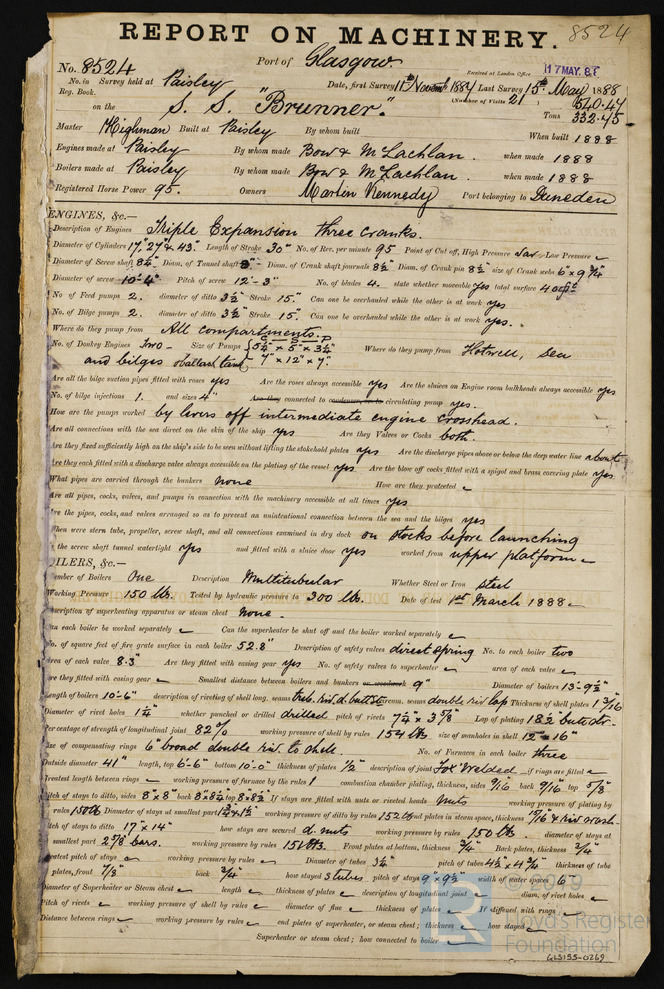 8524
REPORT ON MACHINERY.
No. 8524 Port of Glasgow
Received at London Office 17 MAY. 88
No. in Survey held at Paisley Date, first Survey 11th Novemb 1887 Last Survey 15th May 1888
Reg. Book. (Number of Visits 21)
on the S. S. "Brunner." Tons 540.47 332.45
Master Highman Built at Paisley By whom built When built 1888
Engines made at Paisley By whom made Bow & McLachlan. when made 1888
Boilers made at Paisley By whom made Bow & McLachlan. when made 1888
Registered Horse Power 95. Owners Martin Kennedy Port belonging to Duneden
ENGINES, &c.—
Description of Engines Triple Expansion three cranks.
Diameter of Cylinders 17", 27" & 43" Length of Stroke 30" No. of Rev. per minute 95 Point of Cut off, High Pressure Var Low Pressure
Diameter of Screw shaft 8½" Diam. of Tunnel shaft 8" Diam. of Crank shaft journals 8½" Diam. of Crank pin 8½" size of Crank webs 6" × 9¾"
Diameter of screw 10'-4" Pitch of screw 12'-3" No. of blades 4. state whether moveable yes total surface 40
No. of Feed pumps 2. diameter of ditto 3½" Stroke 15". Can one be overhauled while the other is at work yes
No. of Bilge pumps 2. diameter of ditto 3½" Stroke 15". Can one be overhauled while the other is at work yes.
Where do they pump from All compartments.
No. of Donkey Engines Two - Size of Pumps 5¼" × 5" × 3¼" Where do they pump from Hotwell, sea
and bilges & ballast tank 7" × 12" × 7"
Are all the bilge suction pipes fitted with roses yes Are the roses always accessible yes Are the sluices on Engine room bulkheads always accessible yes
No. of bilge injections 1. and sizes 4" Are they connected to condenser, or to circulating pump yes.
How are the pumps worked by levers off intermediate engine crosshead.
Are all connections with the sea direct on the skin of the ship yes Are they Valves or Cocks both.
Are they fixed sufficiently high on the ship's side to be seen without lifting the stokehold plates yes Are the discharge pipes above or below the deep water line about
Are they each fitted with a discharge valve always accessible on the plating of the vessel yes Are the blow off cocks fitted with a spigot and brass covering plate yes
What pipes are carried through the bunkers none How are they protected
Are all pipes, cocks, valves, and pumps in connection with the machinery accessible at all times yes
Are the pipes, cocks, and valves arranged so as to prevent an unintentional connection between the sea and the bilges yes
When were stern tube, propeller, screw shaft, and all connections examined in dry dock on stocks before launching
Is the screw shaft tunnel watertight yes and fitted with a sluice door yes worked from upper platform
BOILERS, &c.—
Number of Boilers One Description Multitubular Whether Steel or Iron steel
Working Pressure 150 lb. Tested by hydraulic pressure to 300 lb. Date of test 1st March 1888
Description of superheating apparatus or steam chest none.
Can each boiler be worked separately Can the superheater be shut off and the boiler worked separately
No. of square feet of fire grate surface in each boiler 52.8" Description of safety valves direct spring No. to each boiler two
Area of each valve 8.3" Are they fitted with easing gear yes No. of safety valves to superheater area of each valve
Are they fitted with easing gear Smallest distance between boilers and bunkers or woodwork 9" Diameter of boilers 13'-9½"
Length of boilers 10'-6" description of riveting of shell long. seams treb. riv. d. butt str circum. seams double riv lap Thickness of shell plates 1 3/16"
Diameter of rivet holes 1¼" whether punched or drilled drilled pitch of rivets 7¾" & 3⅞" Lap of plating 18½" butt str.
Percentage of strength of longitudinal joint 82% working pressure of shell by rules 154 lb. size of manholes in shell 12" × 16"
Size of compensating rings 6" broad double riv. to shell. No. of Furnaces in each boiler three
Outside diameter 41" length, top 6'-6" bottom 10'-0" thickness of plates ½" description of joint Fox Welded if rings are fitted
Greatest length between rings working pressure of furnace by the rules combustion chamber plating, thickness, sides 9/16" back 9/16" top 5/8"
Pitch of stays to ditto, sides 8" × 8" back 8 × 8¼ top 8 × 8½" If stays are fitted with nuts or riveted heads Nuts working pressure of plating by
rules 150 lb Diameter of stays at smallest part working pressure of ditto by rules 152 lb end plates in steam space, thickness
Pitch of stays to ditto 17" × 14" how stays are secured d. nuts working pressure by rules 150 lb. diameter of stays at
smallest part 2⅞" bars. working pressure by rules 151 lbs. Front plates at bottom, thickness ¾" Back plates, thickness ¾"
Greatest pitch of stays working pressure by rules Diameter of tubes 3¼" pitch of tubes 4½" × 4¾" thickness of tube
plates, front 7/8" back ¾" how stayed 3 tubes pitch of stays 9" × 9½" width of water spaces 6"
Diameter of Superheater or Steam chest length thickness of plates description of longitudinal joint diam. of rivet holes
Pitch of rivets working pressure of shell by rules diameter of flue thickness of plates If stiffened with rings
Distance between rings working pressure by rules end plates of superheater, or steam chest; thickness how stayed
Superheater or steam chest; how connected to boiler
© 2019
Lloyd's Register
Foundation
GLS155-0269